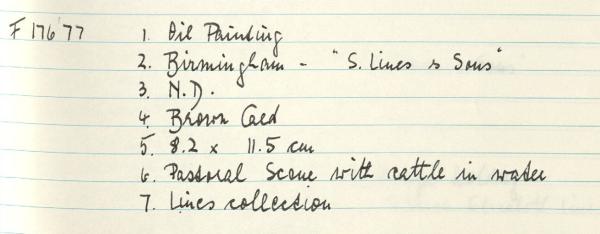 F 176'77 1. Oil Painting
2. Birmingham - "S. Lines & Sons"
3. N.D.
4. Brown Card
5. 8.2 x 11.5 cm
6. Pastoral Scene with cattle in water
7. Lines collection